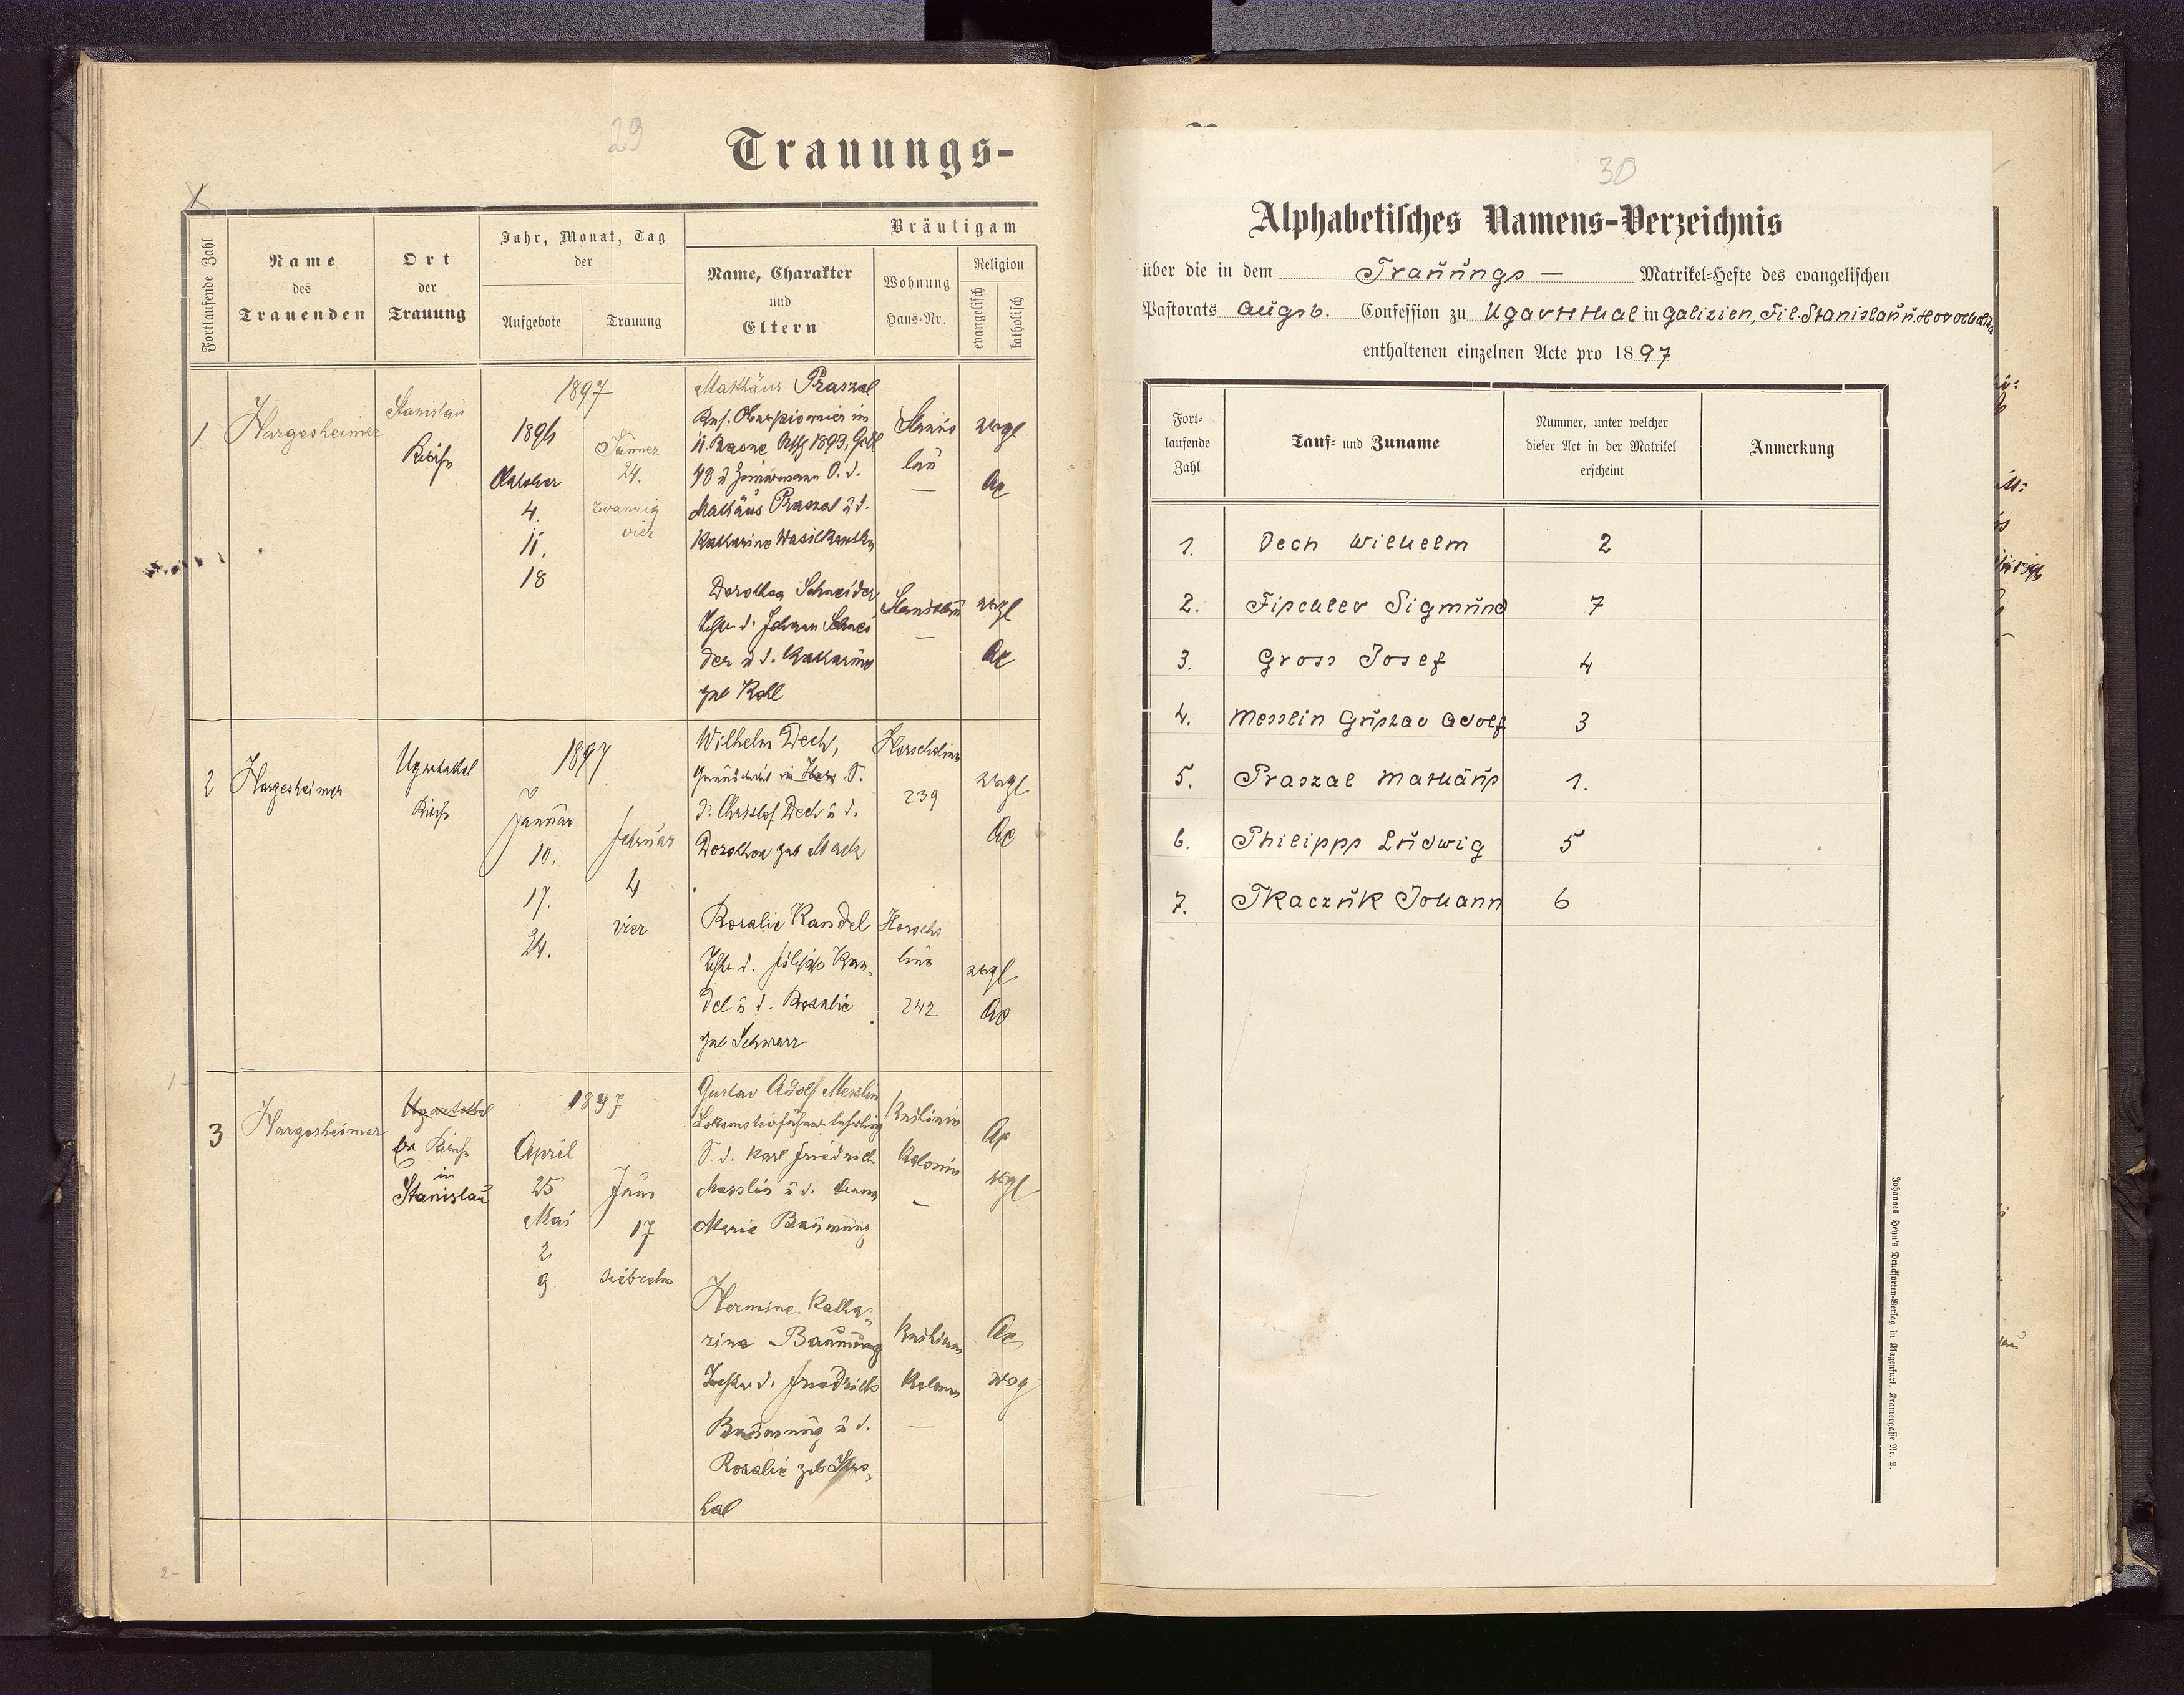 29
Trauungs-
Fortlaufende Zahl
Name
des
Trauenden
Ort
der
Trauung
Jahr, Monat, Tag
der
Aufgebote
Trauung
Bräutigam
Name, Charakter
und
Eltern
Wohnung
Haus-Nr.
Religion
evangelisch
katholisch
1
Hargesheimer
Stanislau
Kirche
1897
1896
Oktober
4.
11.
18
Jänner
24.
zwanzig
vier
Mathäus Praszal
Mathäus Praszal u. d.
Katharine
Dorothea Schneider
Tochter d. Johann Schnei
der u d. Katharina
geb Koll
Stanis
lau
—
evgl
AC
Stanislau
—
evgl
AC
2
Hargesheimer
Ugartsthal
Kirche
1897
Januar
10.
17.
24.
Februar
4
vier
Wilhelm Dech,
d. Christof Dech u d.
Dorothea geb Mack
Rosalie Kandel
Tochter d. Filipp Kan-
del u d. Rosalie
geb Schwarz
239
evgl
AC
Horocho
lina
242
evgl
AC
3
Hargesheimer
Ugartsthal
Kirche
in
Stanislau
1897
April
25
Mai
2
9.
Juni
17
siebzehn
Gustav Adolf Messlin
Lokomotivführerlehrling
S. d. Karl Friedrich
Messlin u d.
Marie Baumung
Hermine Katha-
rina Baumung
Tochter d. Friedrich
Baumung u d.
Rosalie geb
Knihinin
Kolonie
—
AC
evgl
Knihinin
Kolonie
—
AC
evg
30
Alphabetisches Namens-Verzeichnis
über die in dem Trauungs — Matrikel-Hefte des evangelischen
Pastorats Augsb. Confession zu Ugartsthal in Galizien, Fil. Stanislau u. Horocholina
enthaltenen einzelnen Acte pro 1897
Fort-
laufende
Zahl
Tauf- und Zuname
Nummer, unter welcher
dieser Act in der Matrikel
erscheint
Anmerkung
1. Dech Wilhelm 2
2. Fischler Sigmund 7
3. Gross Josef 4
4. Messlin Gustav Adolf 3
5. Praszal Mathäus 1.
6. Philipps Ludwig 5
7. Tkaczuk Johann 6
Johannes Heyn's Drucksorten-Verlag in Klagenfurt, Kramergasse Nr. 2.